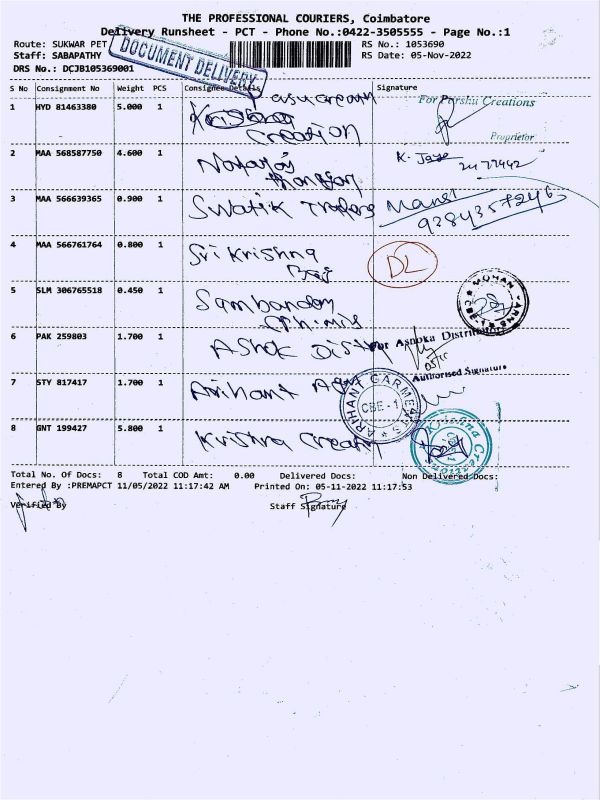 THE PROFESSIONAL COURIERS, Coimbatore
Delivery Runsheet - PCT - Phone No.:0422-3505555 - Page No.:1
Route: SUKWAR PET
RS No.: 1053690
Staff: SABAPATHY
RS Date: 05-Nov-2022
DRS No.: DCJB105369001
DOCUMENT DELIVERY
S No Consignment No Weight PCS Consignee Details Signature
1 HYD 81463380 5.000 1
Creation
For Parshu Creations
Proprietor
2 MAA 568587750 4.600 1
K. Jaya
2477442
3 MAA 566639365 0.900 1 Swatik Traders Mansi
9284357246
4 MAA 566761764 0.800 1 Sri Krishna
DL
5 SLM 306765518 0.450 1 Sambandam
MOHAN
6 PAK 259803 1.700 1 Ashok
For Ashoka Distributors
Authorised Signature
7 STY 817417 1.700 1 Arihant
ARIHANT GARMENTS
CBE - 1
8 GNT 199427 5.800 1 Krishna Creation
Krishna Creations
Total No. Of Docs: 8 Total COD Amt: 0.00 Delivered Docs: Non Delivered Docs:
Entered By :PREMAPCT 11/05/2022 11:17:42 AM Printed On: 05-11-2022 11:17:53
Verified By Staff Signature